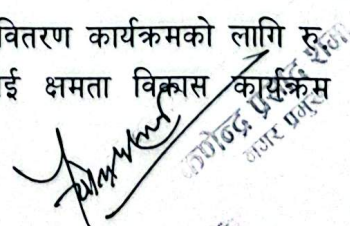 वितरण कार्यक्रमको लागि रु
ई क्षमता विकास कार्यक्रम
प्रसाद
नगर प्रमुख